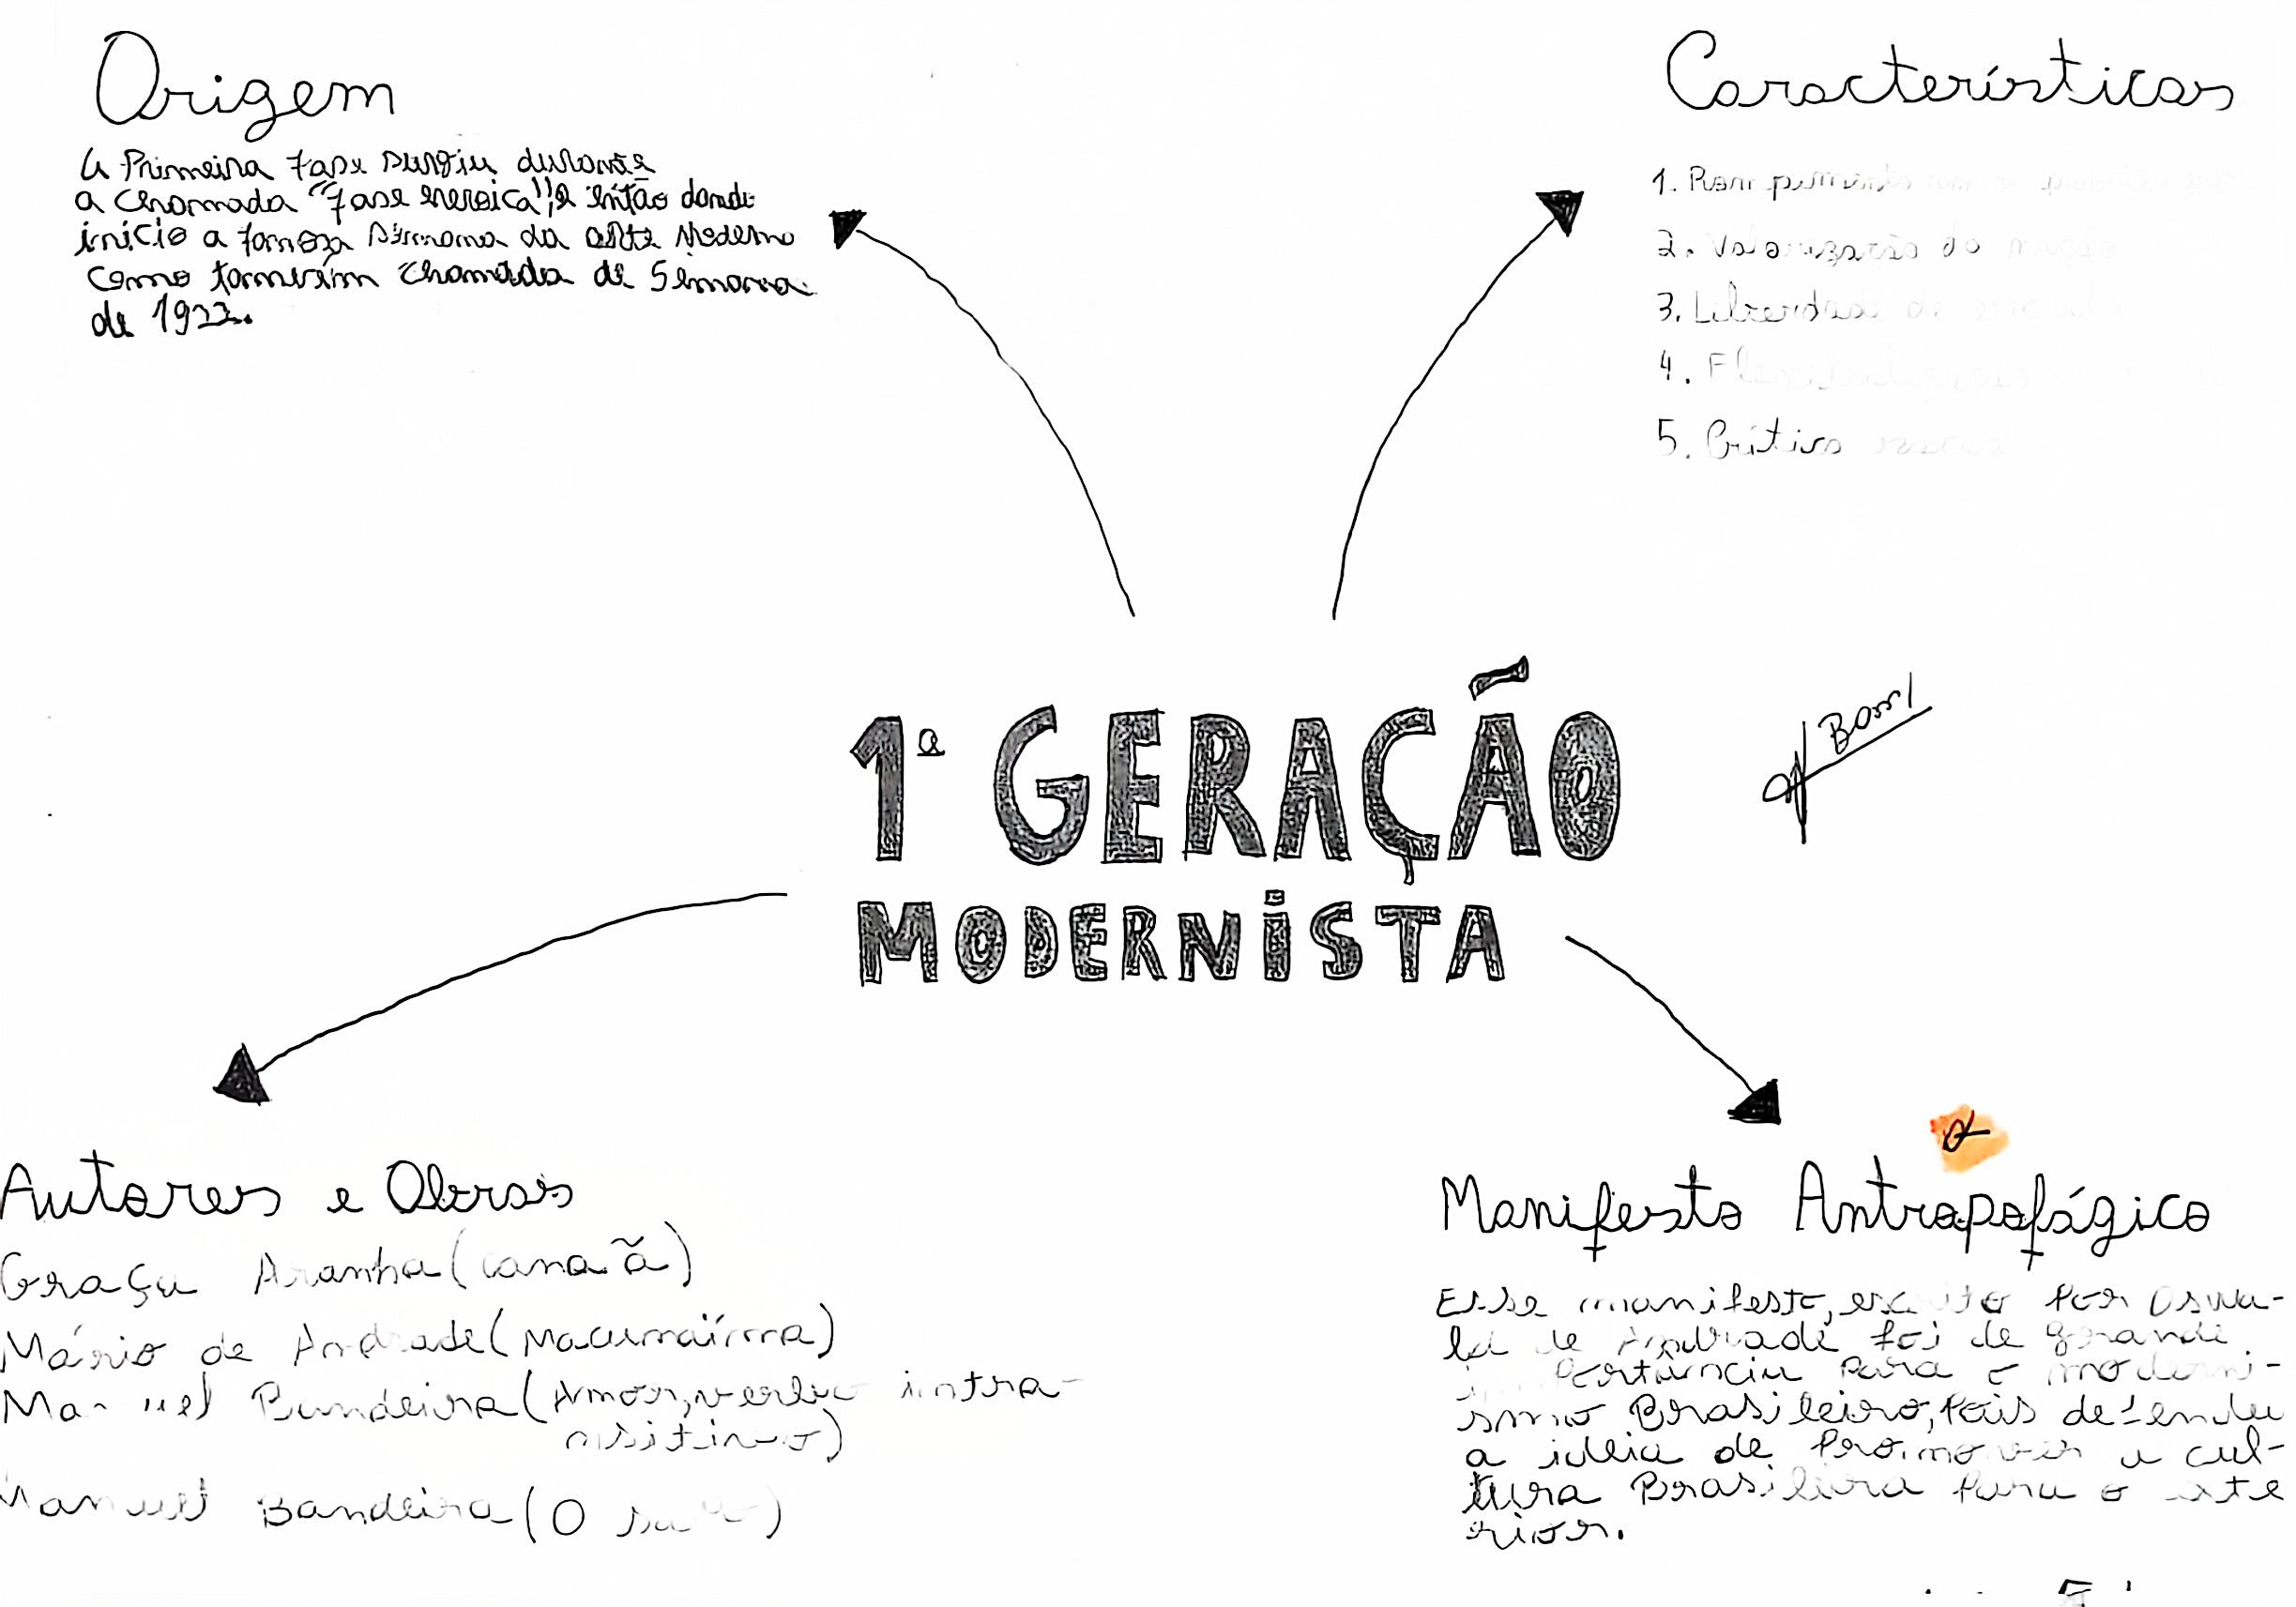 Origem
A Primeira fase surgiu durante
a chamada "fase heroica", e então dando
início a famosa semana da arte Moderna
como também chamada de Semana
de 1922.
Características
1. Rompimento
2. Valorização do
3. Liberdade de
4.
5. Crítica
1ª GERAÇÃO
MODERNISTA
Autores e Obras
Graça Aranha (Canaã)
Mário de Andrade (Macunaíma)
Manuel Bandeira (Amor, verbo intra-
nsitivo)
Manuel Bandeira (O
Manifesto Antropofágico
Esse manifesto, escrito por Oswa-
ld de Andrade foi de grande
importância para o moderni-
smo Brasileiro, pois defendeu
a ideia de promover a cul-
tura Brasileira para o exte
rior.